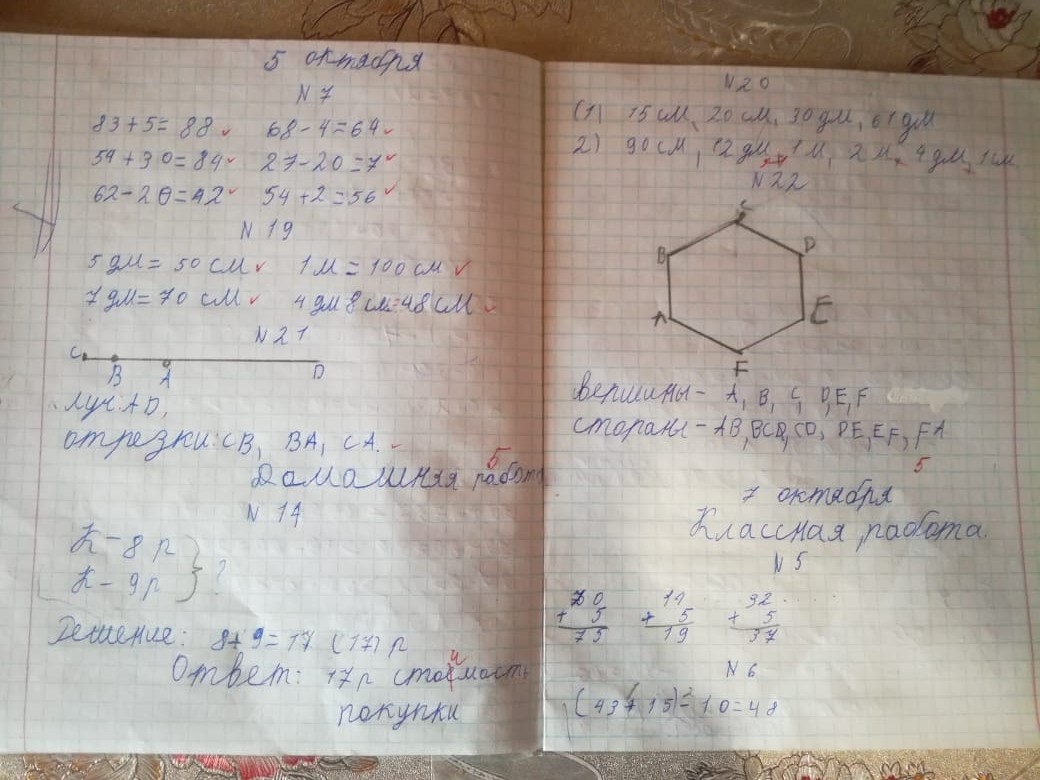 5 октября
N 7
83+5=88 68-4=64
54+30=84 27-20=7
62-20=42 54+2=56
N 19
5 дм=50 см 1м=100см
7 дм=70 см 4 дм 8 см=48 см
N 21
C B A D
луч AD,
отрезки: CB, BA, CA.
5
Домашняя работа
N 14
К-8 р
К-9 р } ?
Решение: 8+9=17 (17) р
Ответ: 17 р стоимость
покупки
N 20
(1) 15 см, 20 см, 30 дм, 61 дм
2) 90 см, 12 дм, 1 м, 2 м, 4 дм, 1 см
N 22
C
B D
A E
F
вершины - A, B, C, D, E, F
стораны - AB, BC, CD, DE, EF, FA
5
7 октября
Классная работа.
N 5
70 14 32
+ 5 + 5 + 5
75 19 37
N 6
(43+15)-10=48